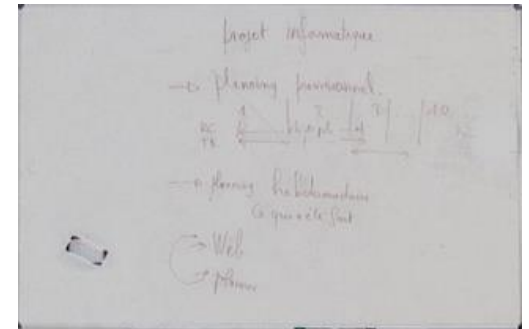 projet informatique
→ Planning prévisionnel.
1 2 3 10
→ planning hebdomadaire
Ce qui a été fait
→ Web
→ Planner